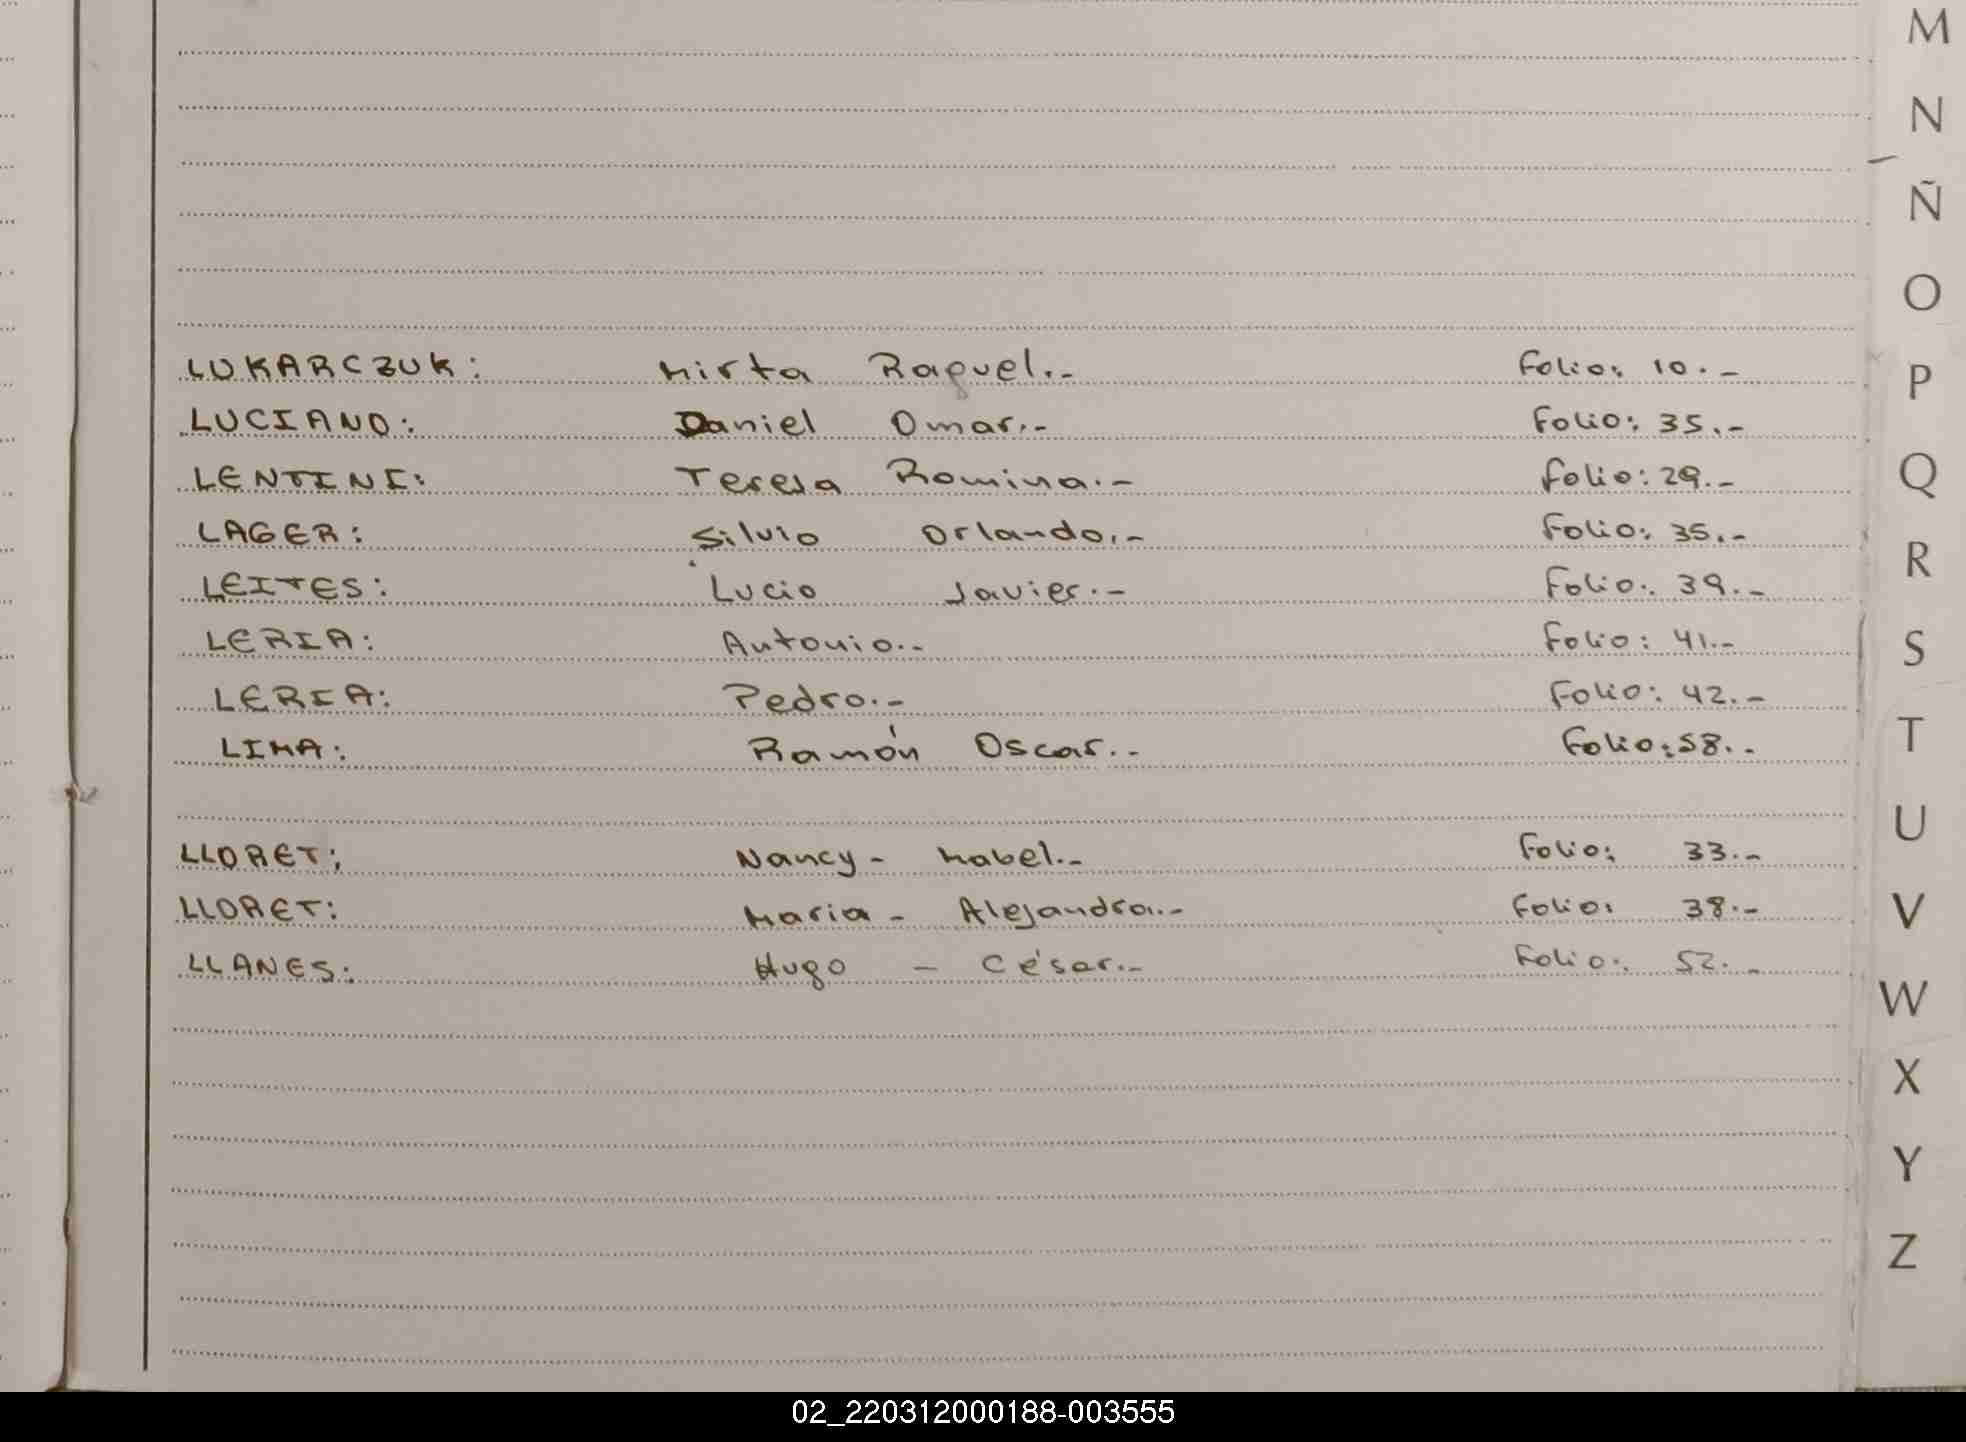 LUKARCZUK: Mirta Raquel.- Folio: 10.-
LUCIANO: Daniel Omar.- Folio: 35.-
LENTINI: Teresa Romina.- Folio: 29.-
LAGER: Silvio Orlando.- Folio: 35.-
LEITES: Lucio Javier.- Folio: 39.-
LERIA: Antonio.- Folio: 41.-
LERIA: Pedro.- Folio: 42.-
LIMA: Ramón Oscar.- Folio: 58.-
LLORET: Nancy - Mabel.- Folio: 33.-
LLORET: Maria - Alejandra.- Folio: 38.-
LLANES: Hugo - César.- Folio: 52.-
M
N
Ñ
O
P
Q
R
S
T
U
V
W
X
Y
Z
02_220312000188-003555